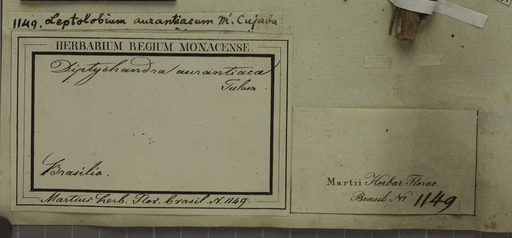 1149. Leptolobium aurantiacum M. Cujaba
HERBARIUM REGIUM MONACENSE.
Diptychandra aurantiaca
Tulasn
Brasilia.
Martius herb. Flor. brasil N. 1149.
Martii Herbar. Florae
Brasil No 1149